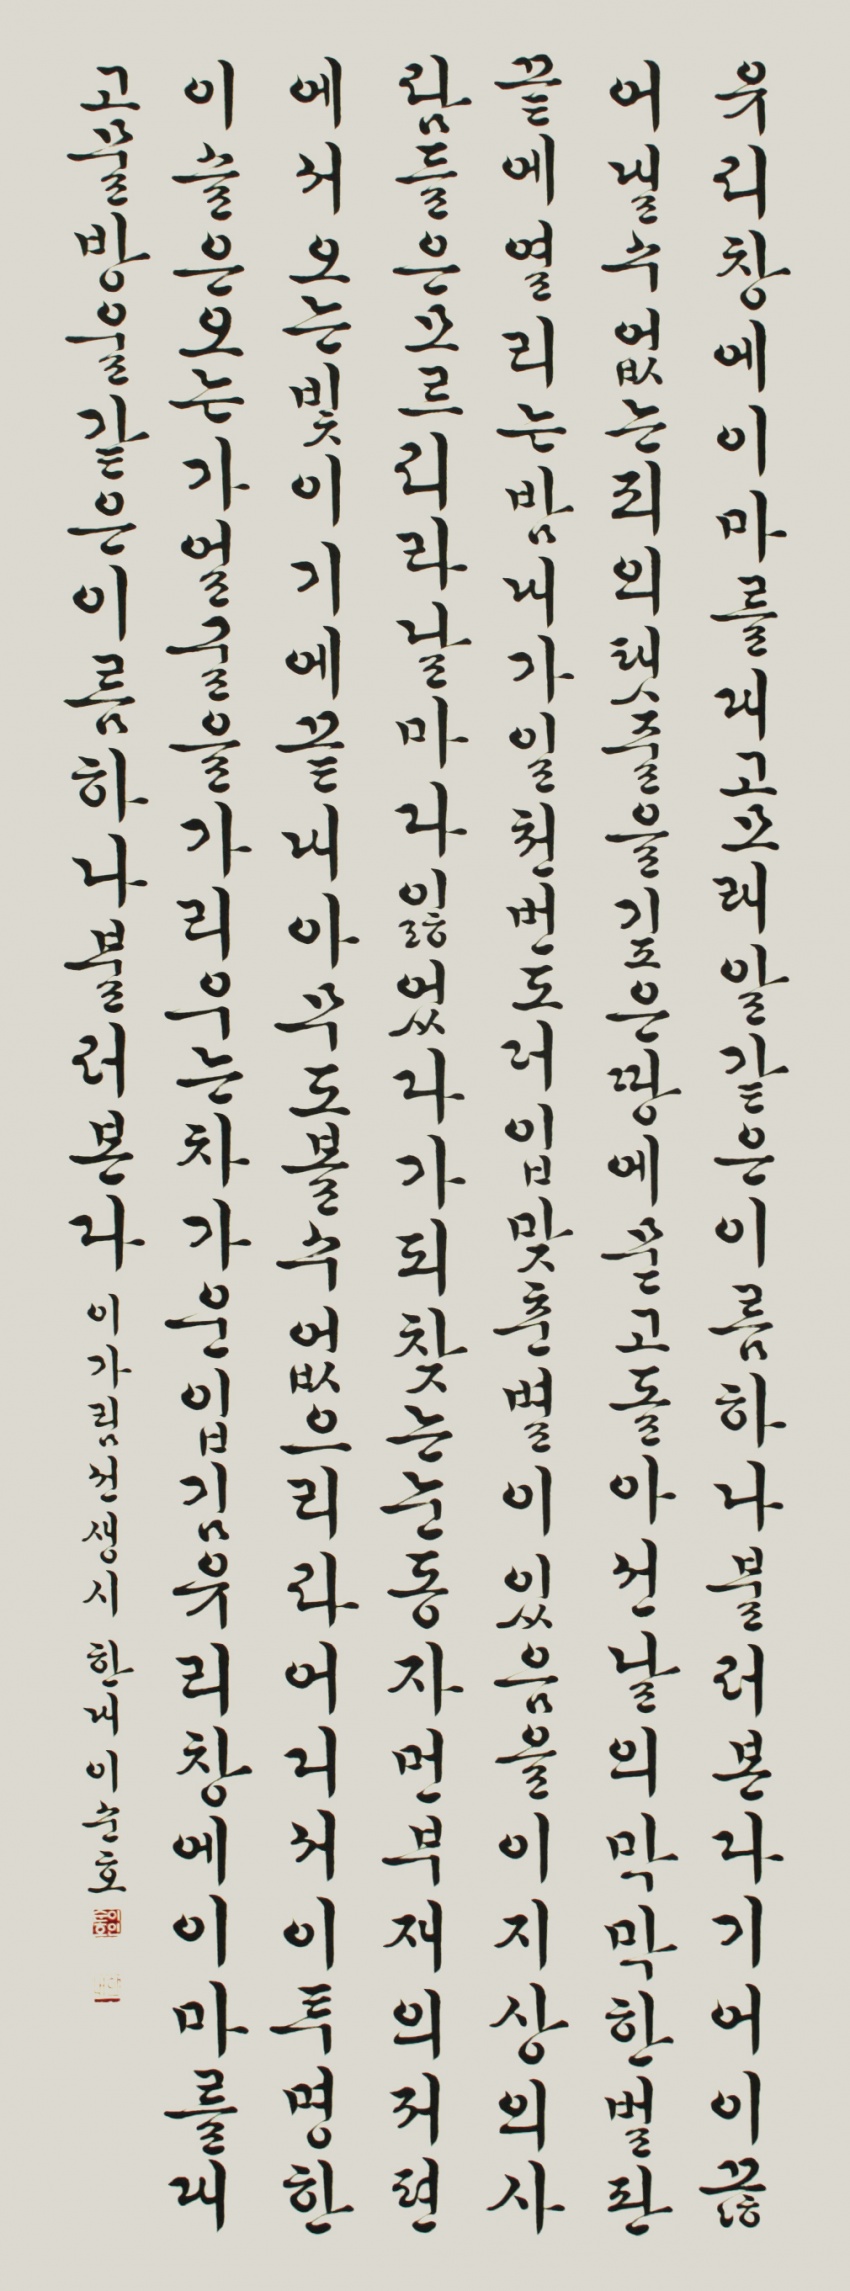 유리창에이마를대고모래알같은이름하나불러본다기어이끊
어낼수없는죄의탯줄을깊은땅에묻고돌아선날의막막한벌판
끝에열리는밤내가일천번도더입맞춘별이있음을이지상의사
람들은모르리라날마다잃었다가되찾는눈동자먼부재의저편
에서오는빛이기에끝내아무도볼수없으리라어디서이투명한
이슬은오는가얼굴을가리우는차가운입김유리창에이마를대
고물방울같은이름하나불러본다 이가림선생시 한내이순호